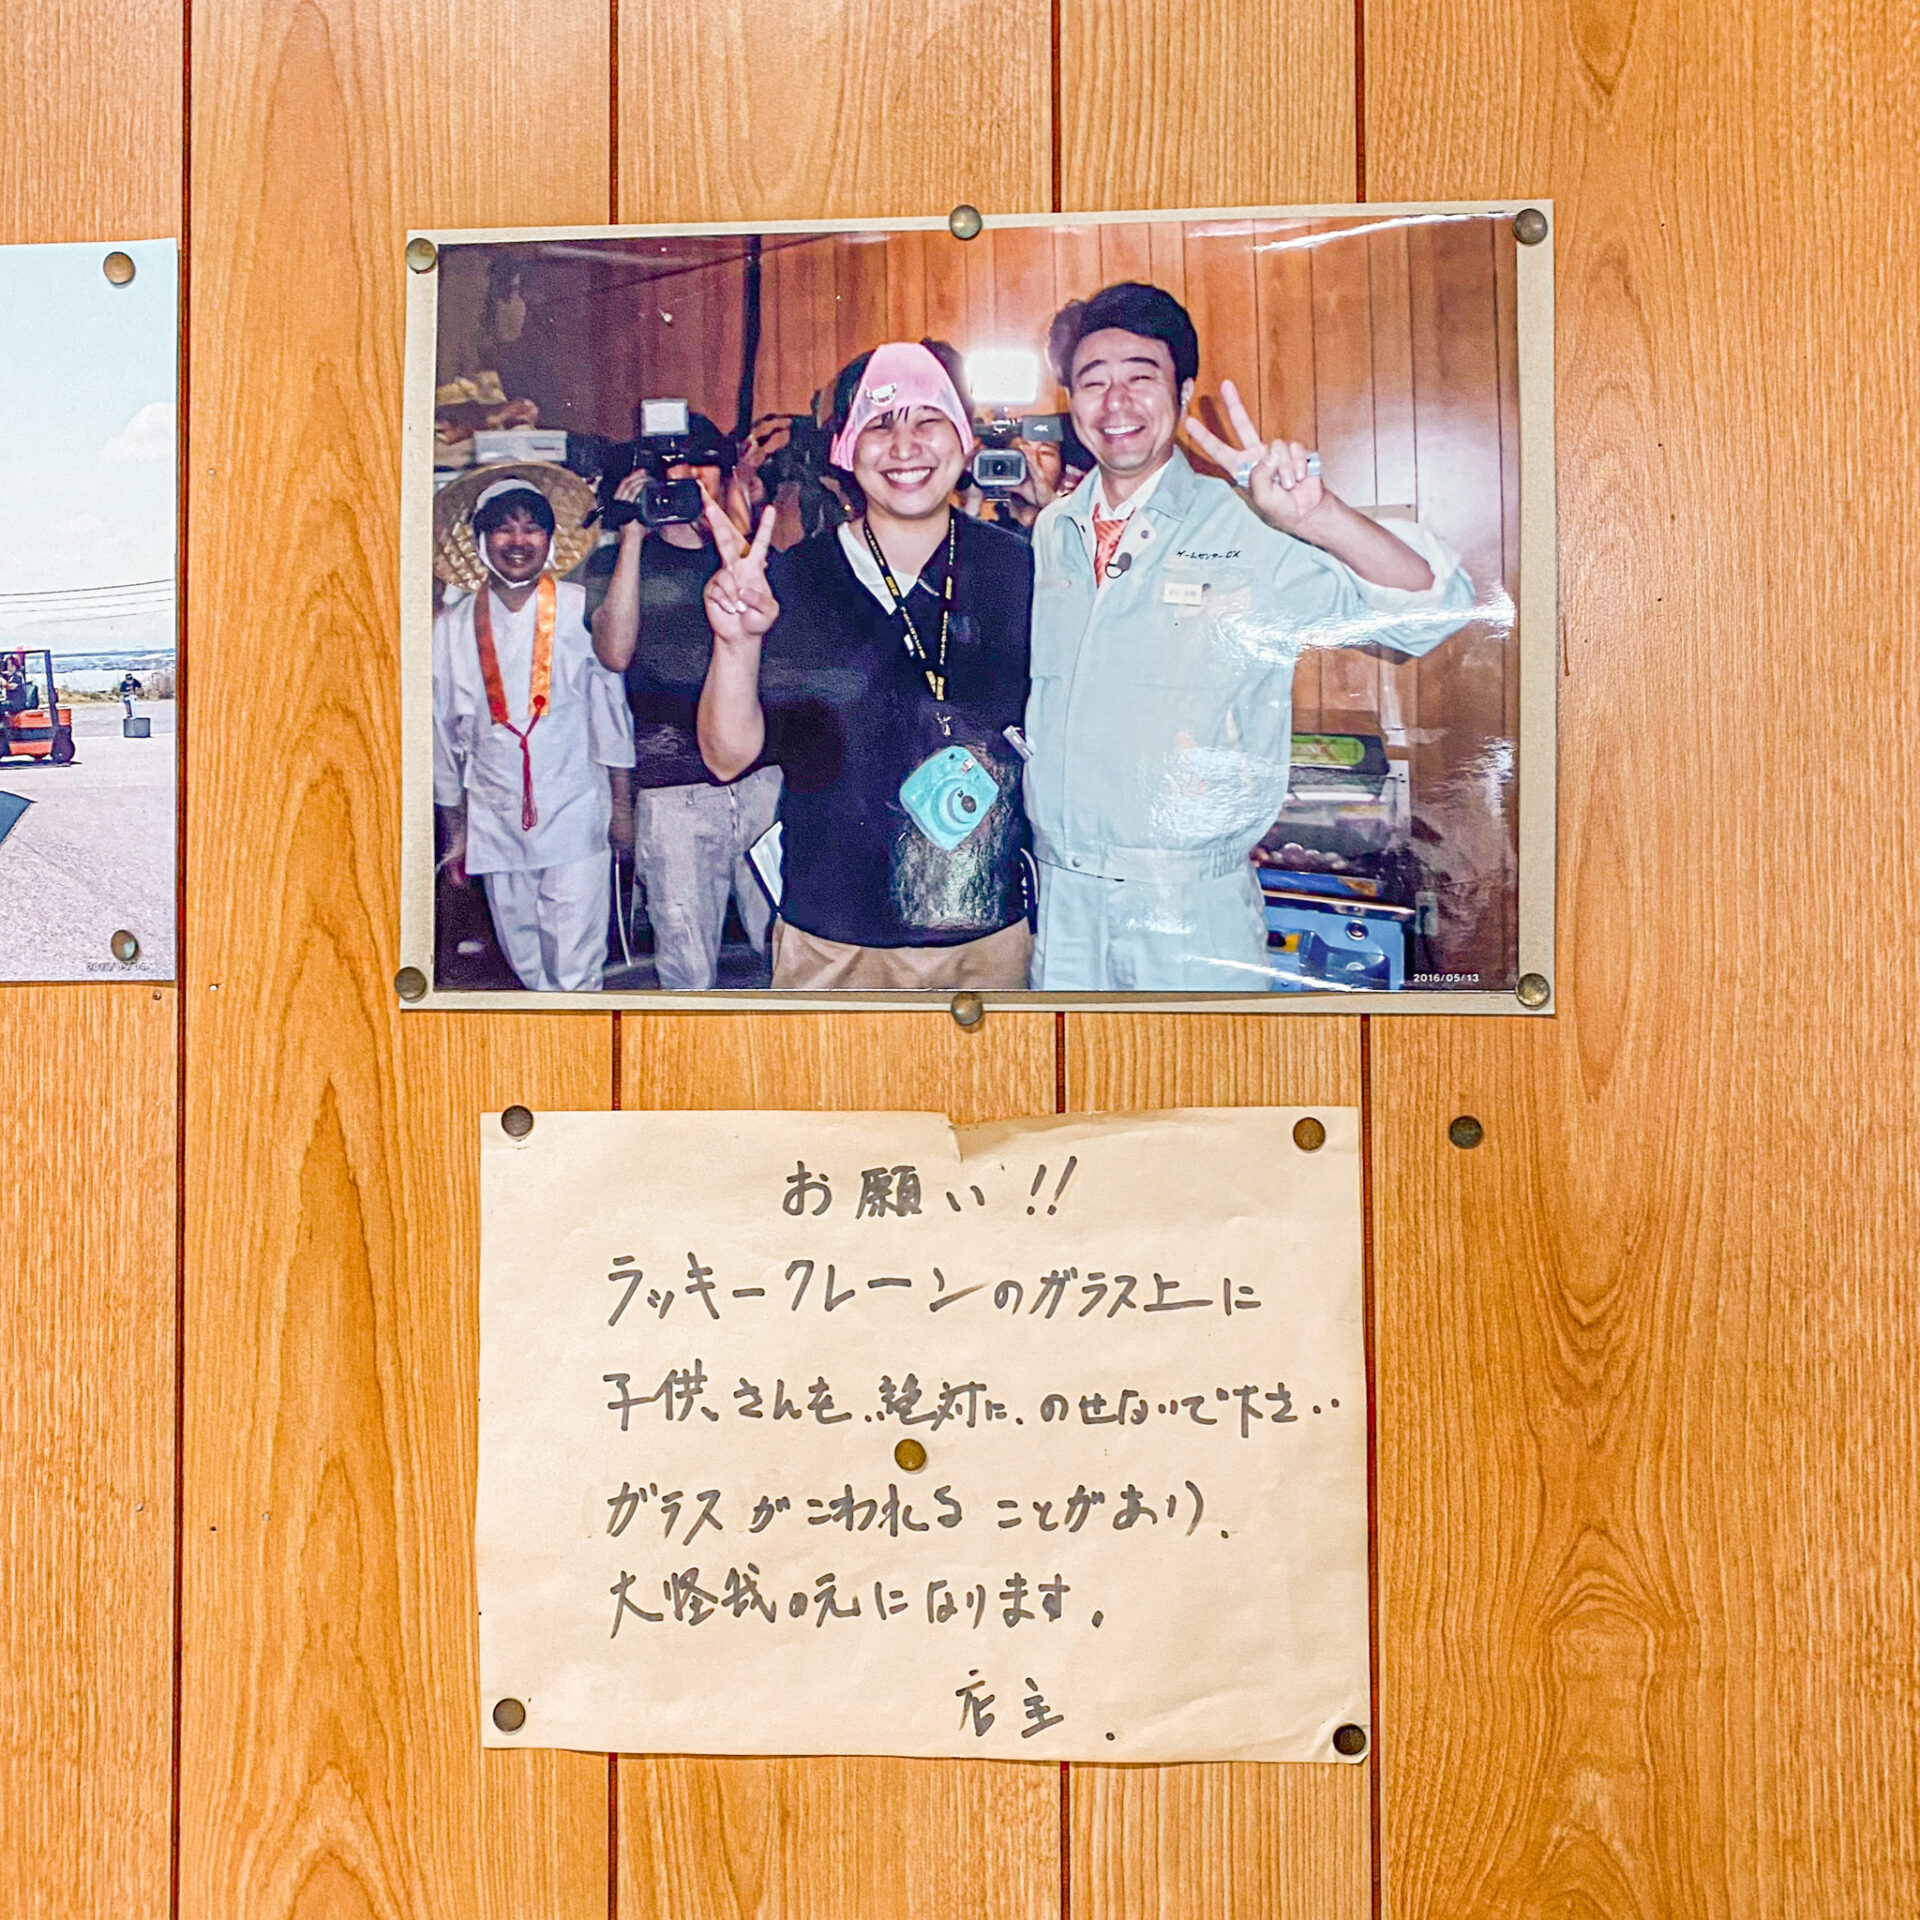 ゲームセンターCX
4K
2016/05/13
お願い!!
ラッキークレーンのガラス上に
子供、さんを、絶対に、のせないで下さい
ガラスがこわれることがあり、
大怪我の元になります。
店主.